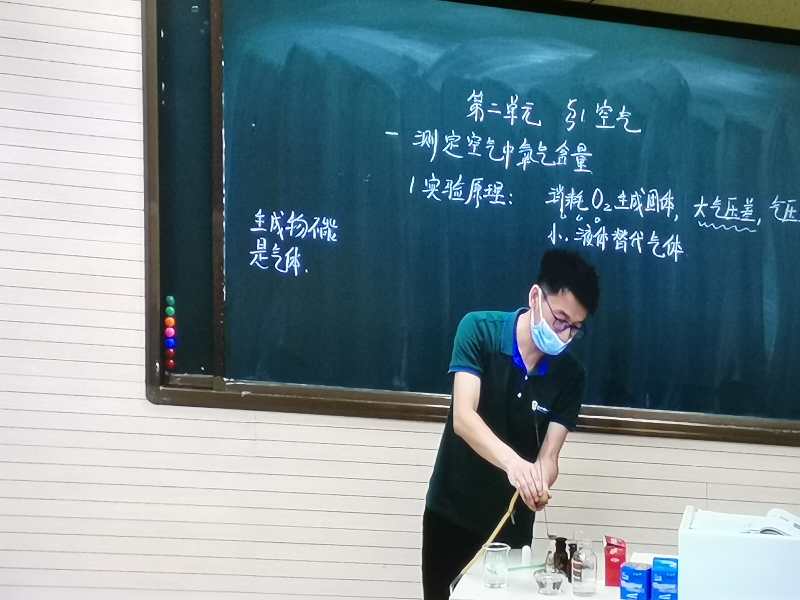 第二单元 §1 空气
一 测定空气中氧气含量
1 实验原理: 消耗O₂生成固体, 大气压差, 气压
小. 液体替代气体
生成物不能
是气体.